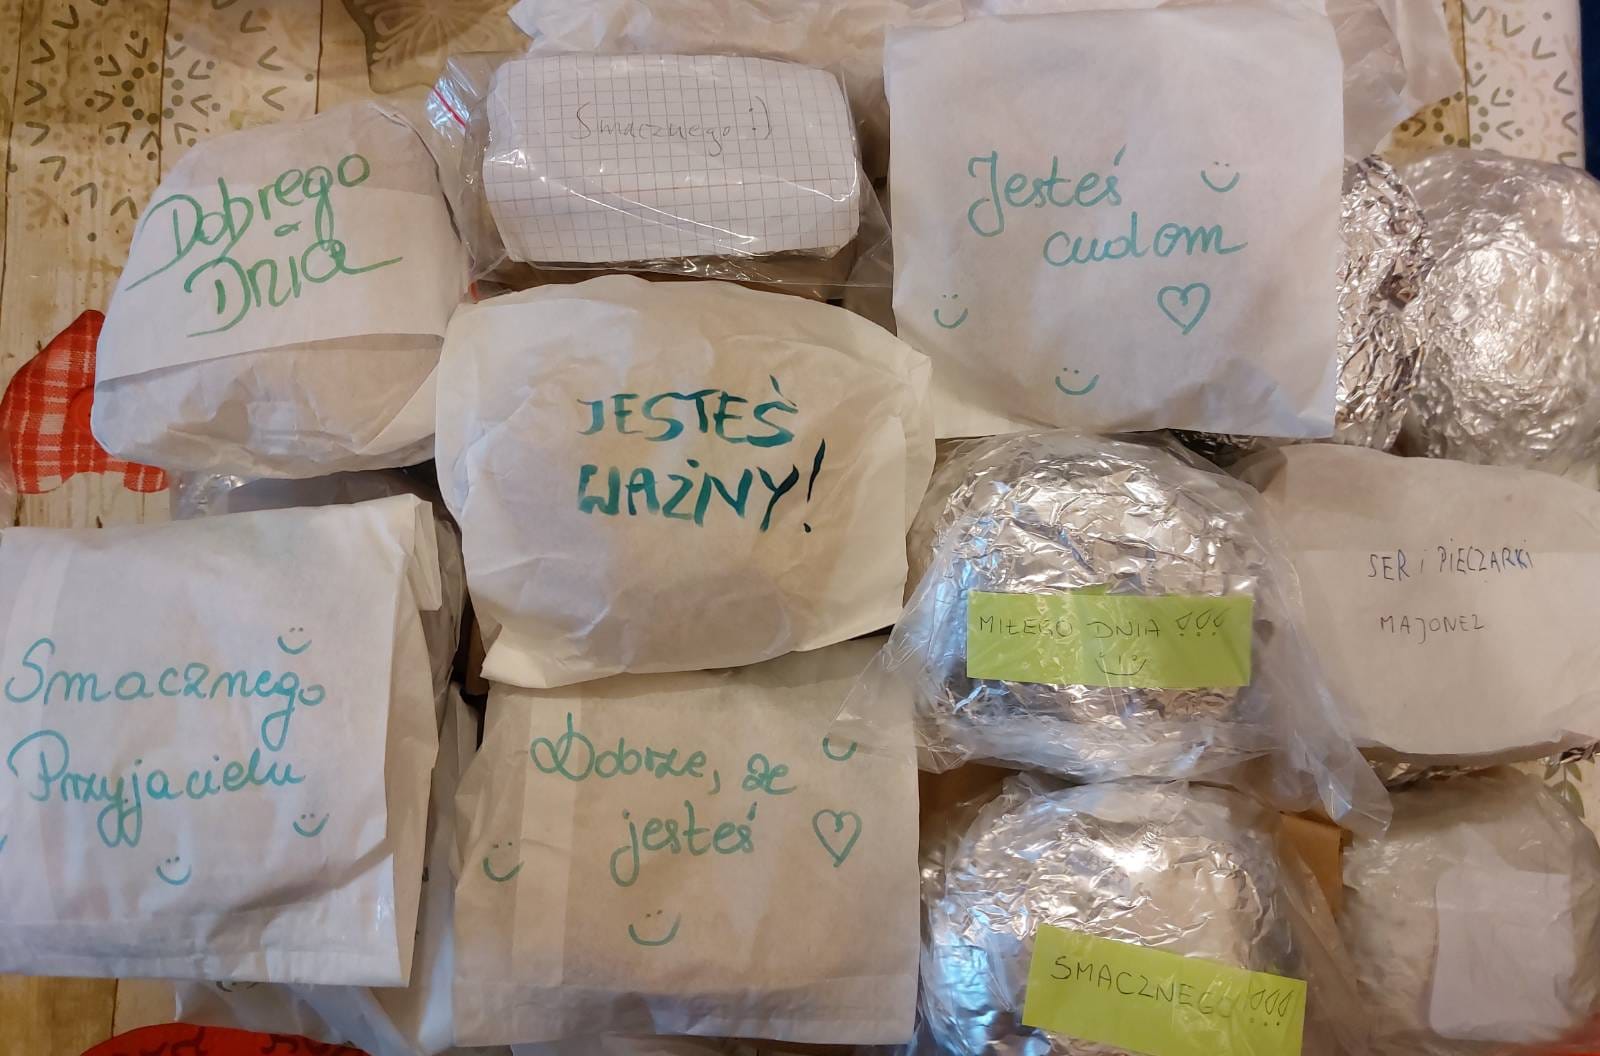 Dobrego
Dnia
Smacznego :)
Jesteś
cudom
JESTEŚ
WAŻNY!
SER i PIECZARKI
MAJONEZ
MIŁEGO DNIA !!!
Smacznego
Przyjacielu
Dobrze, że
jesteś
SMACZNEGO !!!